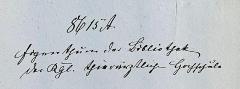 8615A.
Eigenthum der Bibliothek
der Kgl. thierärztlich Hochschule